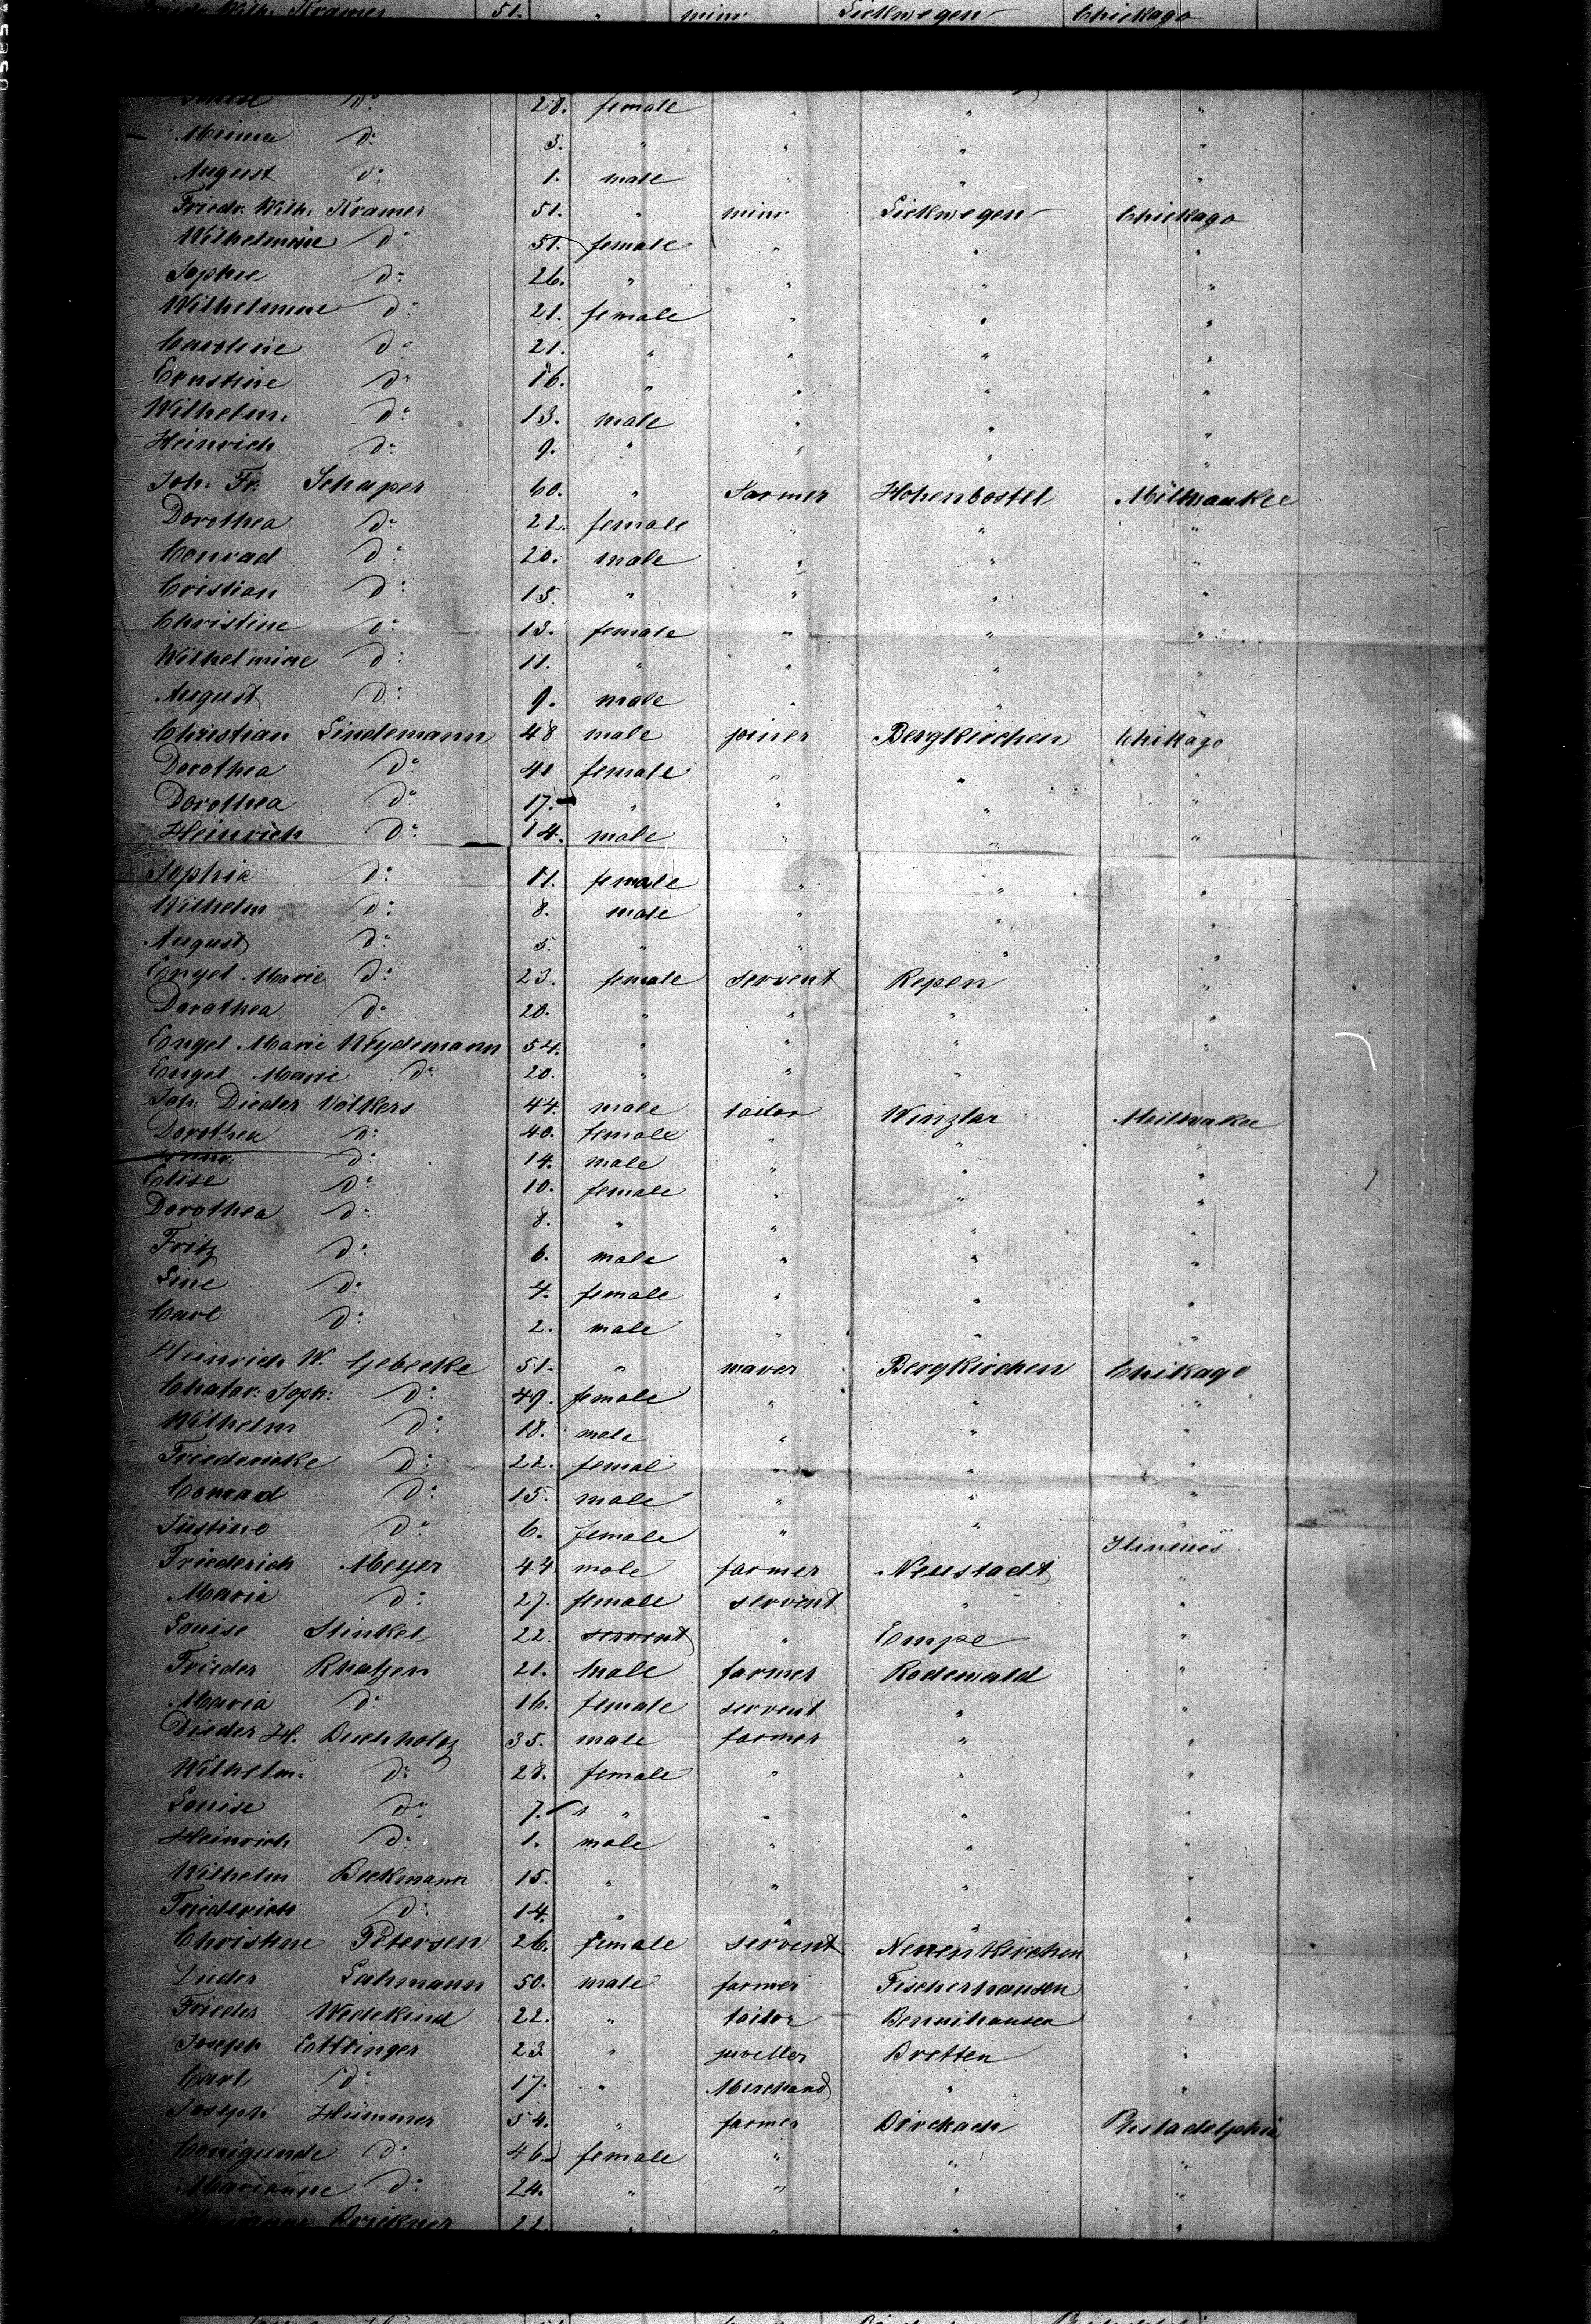 Wilh. Kramer 51. " mine Lickwegen Chickago
Louise do 28. female " " "
Minna do 3. " " " "
August do 1. male " " "
Friedr. Wilh. Kramer 51. " mine Lickwegen Chickago
Wilhelmine do 51. female " " "
Sophie do 26. " " " "
Wilhelmine do 21. female " " "
Caroline do 21. " " " "
Ernstine do 16. " " " "
Wilhelm. do 13. male " " "
Heinrich do 9. " " " "
Joh. Fr. Schaper 60. " Farmer Hohenbostel Milwaukee
Dorothea do 22. female " " "
Conrad do 20. male " " "
Cristian do 15. " " " "
Christine do 13. female " " "
Wilhelmine do 11. " " " "
August do 9. male " " "
Christian Lindemann 48 male joiner Bergkirchen Chikago
Dorothea do 41 female " " "
Dorothea do 17. " " " "
Heinrich do 14. male " " "
Sophia do 11. female " " "
Wilhelm do 8. male " " "
August do 5. " " " "
Engel Marie do 23. female servent Repen "
Dorothea do 20. " " " "
Engel Marie Weydemann 54. " " " "
Engel Marie do 20. " " "
Joh. Dieder Völkers 44. male tailor Winzlar Meilwakee
Dorothea do 40. female " " "
do 14. male " " "
Elise do 10. female " " "
Dorothea do 8. " " " "
Fritz do 6. male " " "
Line do 4. female " " "
Carl do 2. male " " "
Heinrich W. Gebecke 51. " maver Bergkirchen Chikago
Chatar: Soph: do 49. female " " "
Wilhelm do 18. male " " "
Friedericke do 22. femal " " "
Conrad do 15. male " " "
Justine do 6. female " " "
Ilineues
Friederich Meyer 44 male farmer Neustadt "
Maria do 27. female servent " "
Louise Stinkel 22. servent " Empe "
Frieder Rhatjen 21. male farmer Rodewald "
Maria do 16. female servent " "
Dieder H. Buchholtz 35. male farmer " "
Wilhelm. do 28. female " " "
Louise do 7. " " " "
Heinrich do 1. male " " "
Wilhelm Beckmann 15. " " " "
Friederich do 14. " " " "
Christine Petersen 26. female servent Neuenkirchen "
Dieder Lahmann 50. male farmer Fischerhausen "
Frieder Wedekind 22. " tailor Bennihausen "
Joseph Esttinger 23 " juveller Bretten "
Carl do 17. " Merchand " "
Joseph Hümmer 54. " farmer Birckach Philadelphia
Conigunde do 46. female " " "
Marianne do 24. " " " "
Brickner 22. " " " "